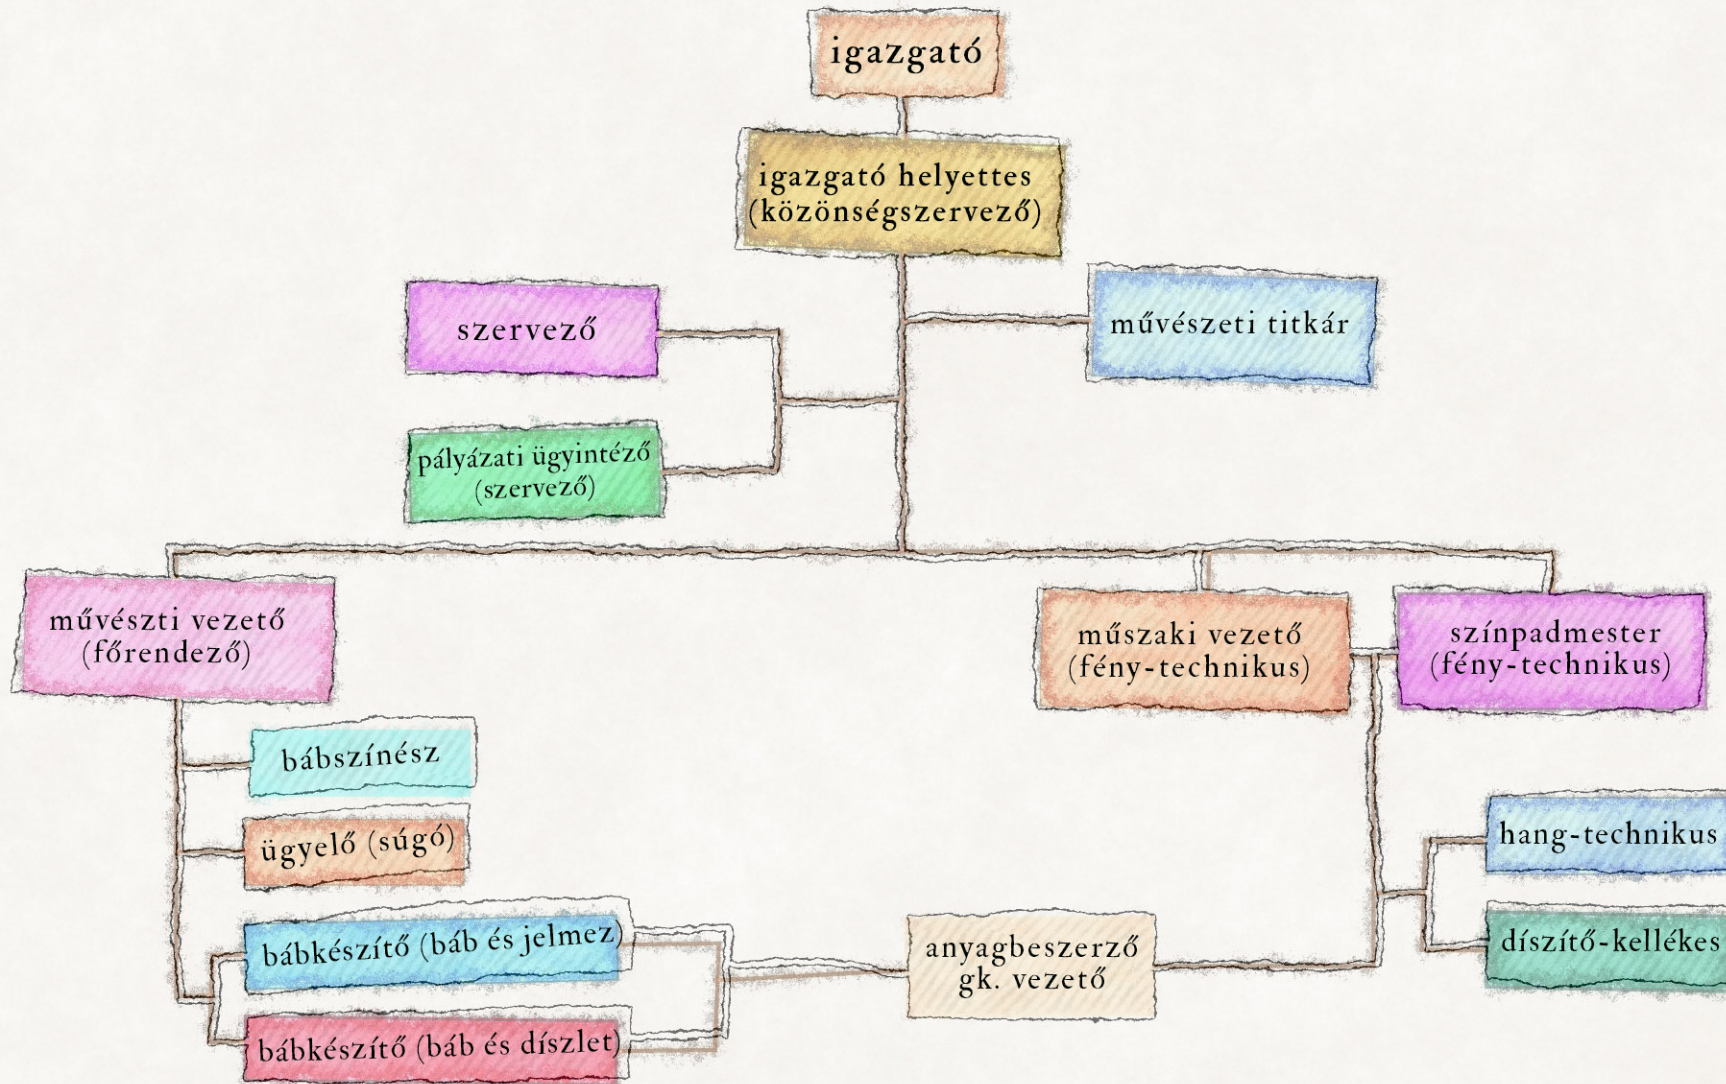 igazgató
igazgató helyettes
(közönségszervező)
szervező
művészeti titkár
pályázati ügyintéző
(szervező)
művészti vezető
(főrendező)
műszaki vezető
(fény-technikus)
színpadmester
(fény-technikus)
bábszínész
ügyelő (súgó)
hang-technikus
bábkészítő (báb és jelmez)
anyagbeszerző
gk. vezető
díszítő-kellékes
bábkészítő (báb és díszlet)